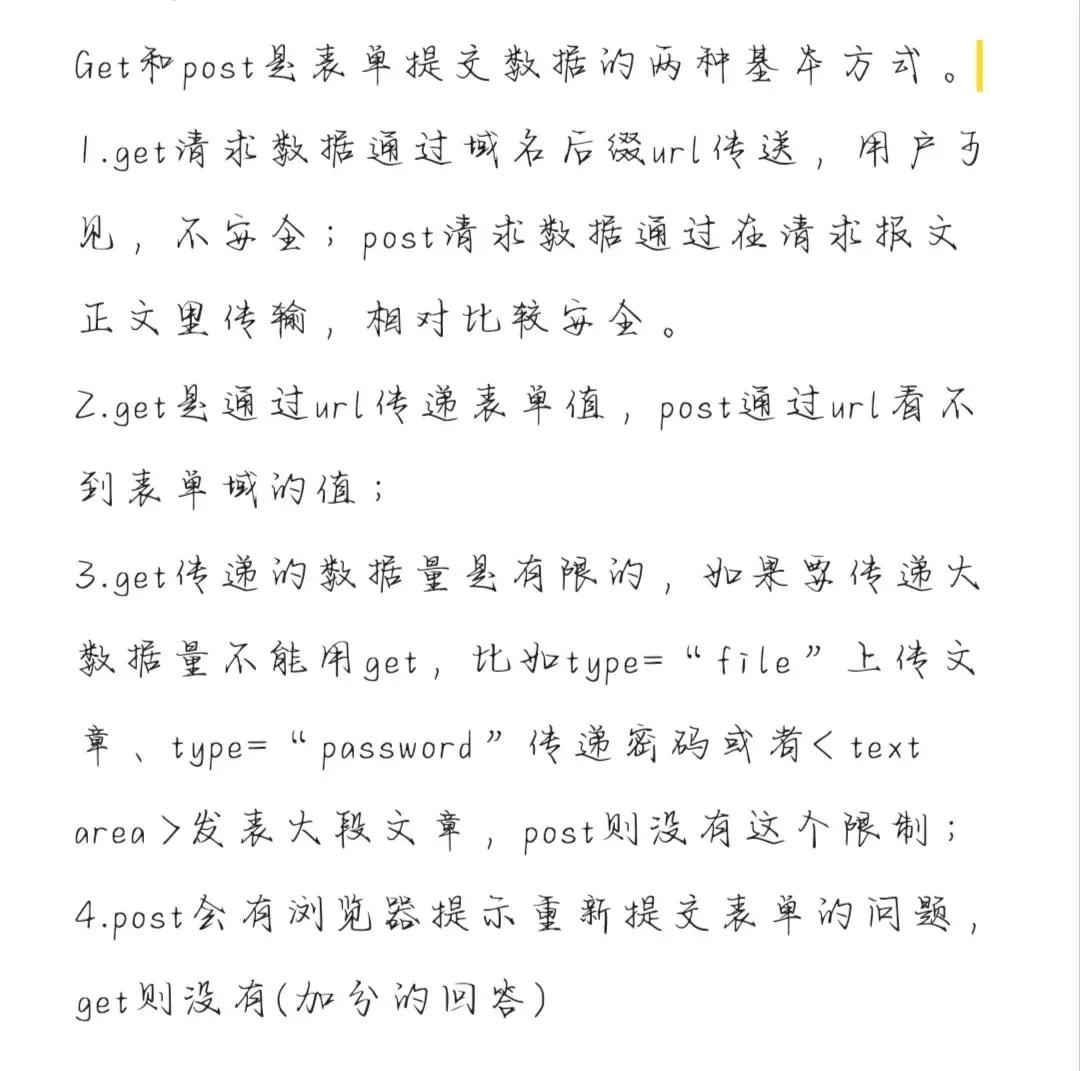 Get和post是表单提交数据的两种基本方式。
1.get请求数据通过域名后缀url传送，用户可
见，不安全；post请求数据通过在请求报文
正文里传输，相对比较安全。
2.get是通过url传递表单值，post通过url看不
到表单域的值；
3.get传递的数据量是有限的，如果要传递大
数据量不能用get，比如type=“file”上传文
章、type=“password”传递密码或者<text
area>发表大段文章，post则没有这个限制；
4.post会有浏览器提示重新提交表单的问题，
get则没有(加分的回答)